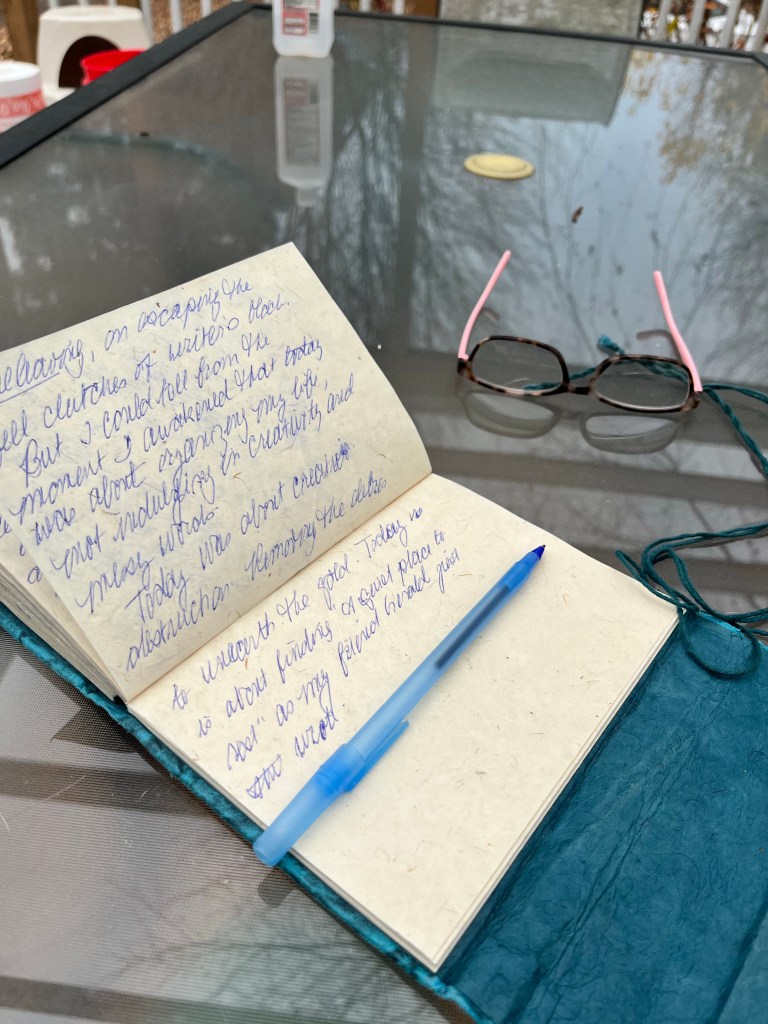 on escaping the
clutches of writers block.
But I could tell from the
moment I awakened that today
was about organizing my life,
not indulging in creativity and
messy words.
Today was about creative
obstruction. Removing the debris
to unearth the gold. Today is
is about finding a quiet place to
as my friend would
wrote.